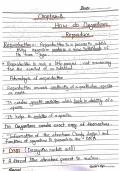 Date:
Chapter-8
How do Organisms
Reproduce
Reproduction: Reproduction is a process by which
living organism produce a new individual of
its own type.
Reproduction is not a life process, not necessary
for the survival of an individual
Advantages of reproduction
Reproduction ensures continuity of a particular species
on earth.
It creates genetic variation which leads to diversity of a
species.
It helps in evolution of a species.
Do Organisms create exact copy of themselves.
Construction of the structure (body design) and
functions of organisms is governed by the DNA.
DNA (Deoxyribo nucleic acid)
A thread like structure present in nucleus